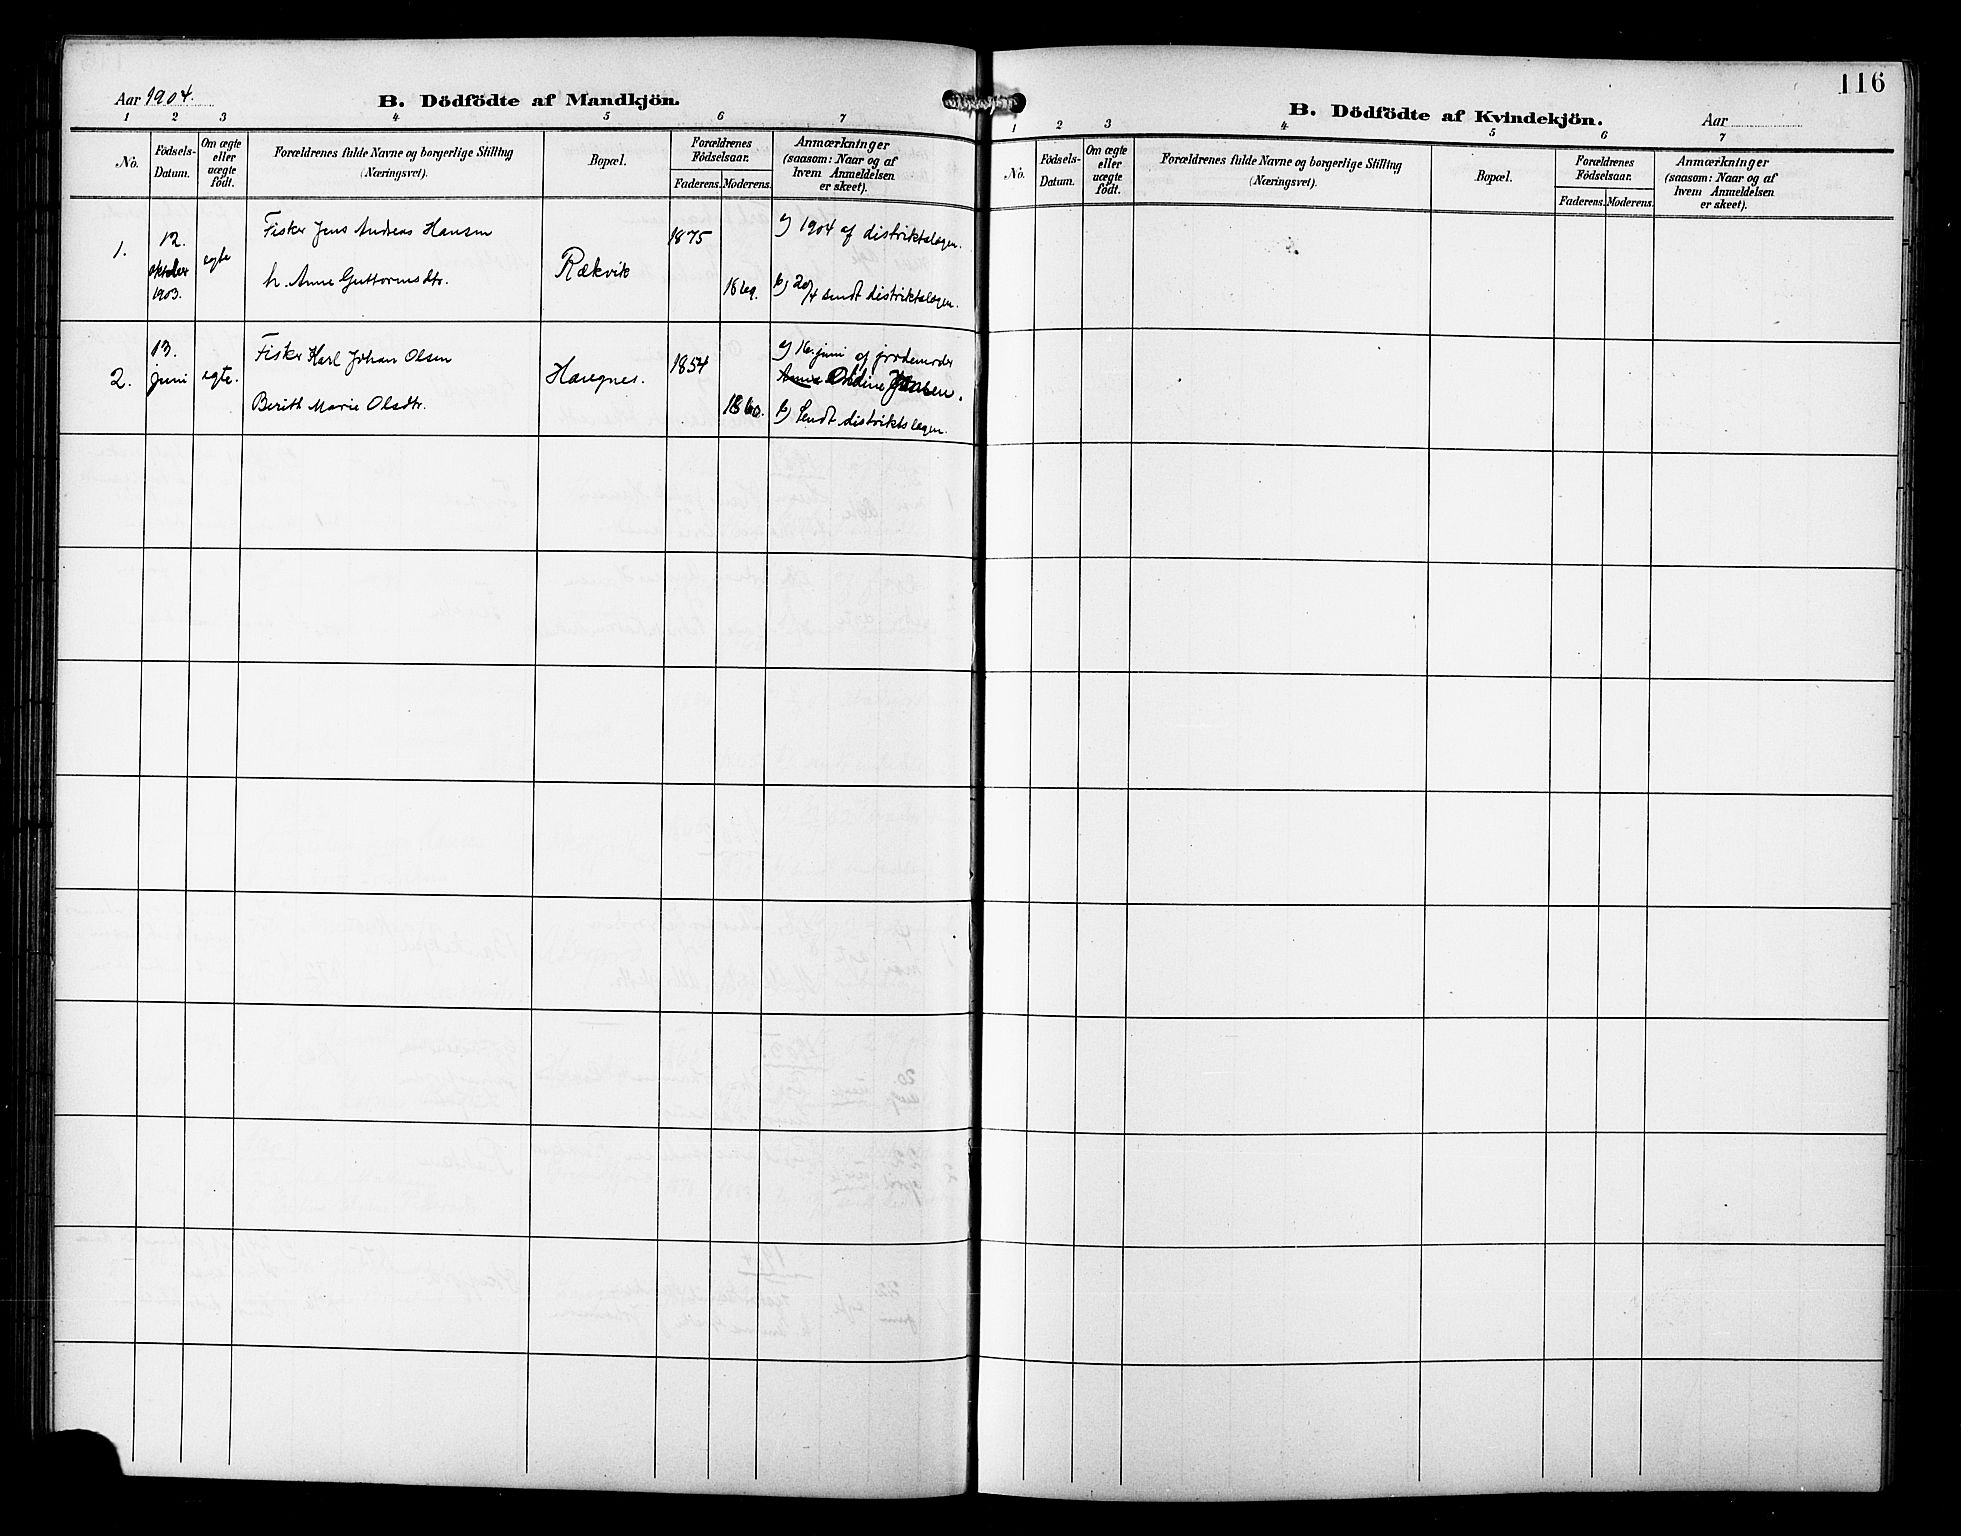 Aar 1904.
B. Dödfödte af Mandkjön.
1 2 3 4 5 6 7
No.
Födsels-
Datum.
Om ægte
eller
uægte
födt.
Forældrenes fulde Navne og borgerlige Stilling
(Næringsvei).
Bopæl.
Forældrenes
Födselsaar.
Faderens. Moderens.
Anmærkninger
(saasom: Naar og af
hvem Anmeldelsen
er skeet).
1.
12.
oktober
1903.
egte
Fisker Jens Andreas Hansen
h. Anne Guttormsdtr.
Rækvik
1875
1869.
a) 1904 af distriktslægen.
b) 20/4 sendt distriktslægen.
2.
13.
juni
egte.
Fisker Karl Johan Olsen
Berith Marie Olsdtr.
Hasegnes.
1854
1860.
a) 16. juni af jordemoder
Anna Oldine
b) Sendt distriktslægen.
116
B. Dödfödte af Kvindekjön.
Aar
1 2 3 4 5 6 7
No.
Födsels-
Datum.
Om ægte
eller
uægte
födt.
Forældrenes fulde Navne og borgerlige Stilling
(Næringsvei).
Bopæl.
Forældrenes
Födselsaar.
Faderens. Moderens.
Anmærkninger
(saasom: Naar og af
hvem Anmeldelsen
er skeet).